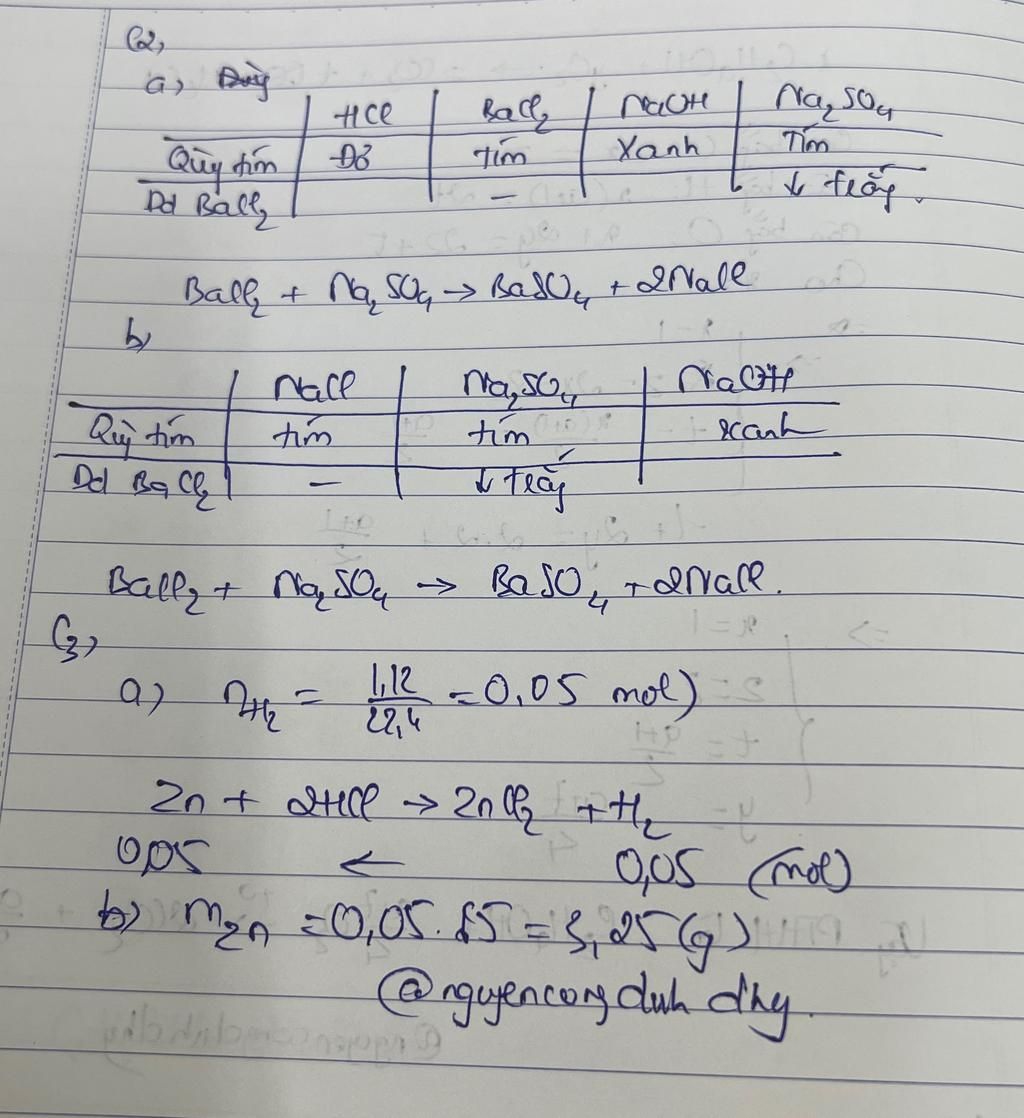 C2,
a,
HCl | BaCl₂ | NaOH | Na₂SO₄
Qùy tím | Đỏ | tím | Xanh | Tím
Dd BaCl₂ | | – | | ↓ trắng.
BaCl₂ + Na₂SO₄ → BaSO₄ + 2NaCl
b,
NaCl | Na₂SO₄ | NaOH
Quỳ tím | tím | tím | xanh
Dd BaCl₂ | – | ↓ trắng
BaCl₂ + Na₂SO₄ → BaSO₄ + 2NaCl.
C3,
a) nH₂ = 1,12/22,4 = 0,05 mol)
Zn + 2HCl → ZnCl₂ + H₂
0,05 ← 0,05 (mol)
b) mZn = 0,05. 65 = 3,25 (g)